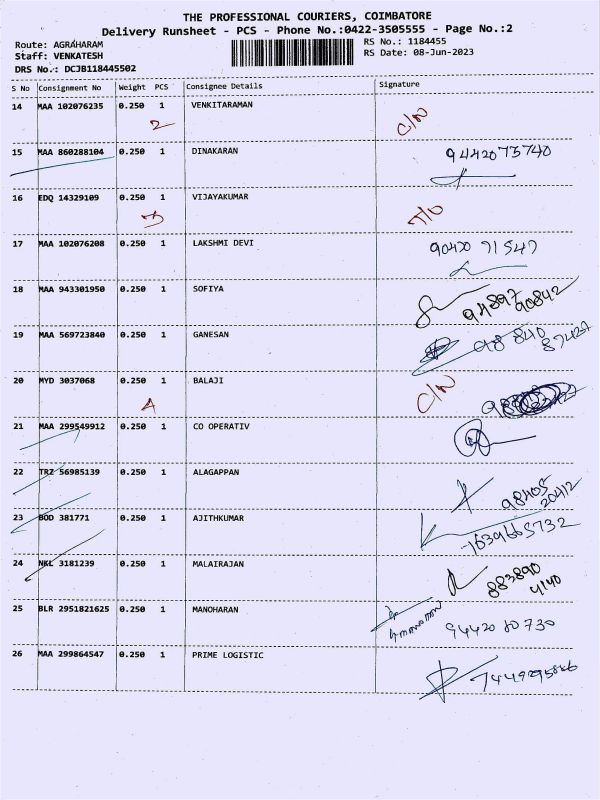 THE PROFESSIONAL COURIERS, COIMBATORE
Delivery Runsheet - PCS - Phone No.:0422-3505555 - Page No.:2
Route: AGRAHARAM RS No.: 1184455
Staff: VENKATESH RS Date: 08-Jun-2023
DRS No.: DCJB118445502
S No Consignment No Weight PCS Consignee Details Signature
14 MAA 102076235 0.250 1 VENKITARAMAN
2 C/N
15 MAA 860288104 0.250 1 DINAKARAN 9442075740
16 EDQ 14329109 0.250 1 VIJAYAKUMAR
3
17 MAA 102076208 0.250 1 LAKSHMI DEVI
18 MAA 943301950 0.250 1 SOFIYA 94897
90842
19 MAA 569723840 0.250 1 GANESAN 98 840
87427
20 MYD 3037068 0.250 1 BALAJI C/N
4
21 MAA 299549912 0.250 1 CO OPERATIV
22 TRZ 56985139 0.250 1 ALAGAPPAN 98405
20412
23 BOD 381771 0.250 1 AJITHKUMAR
7639665732
24 NKL 3181239 0.250 1 MALAIRAJAN 883890
4140
25 BLR 2951821625 0.250 1 MANOHARAN
94420 80730
26 MAA 299864547 0.250 1 PRIME LOGISTIC